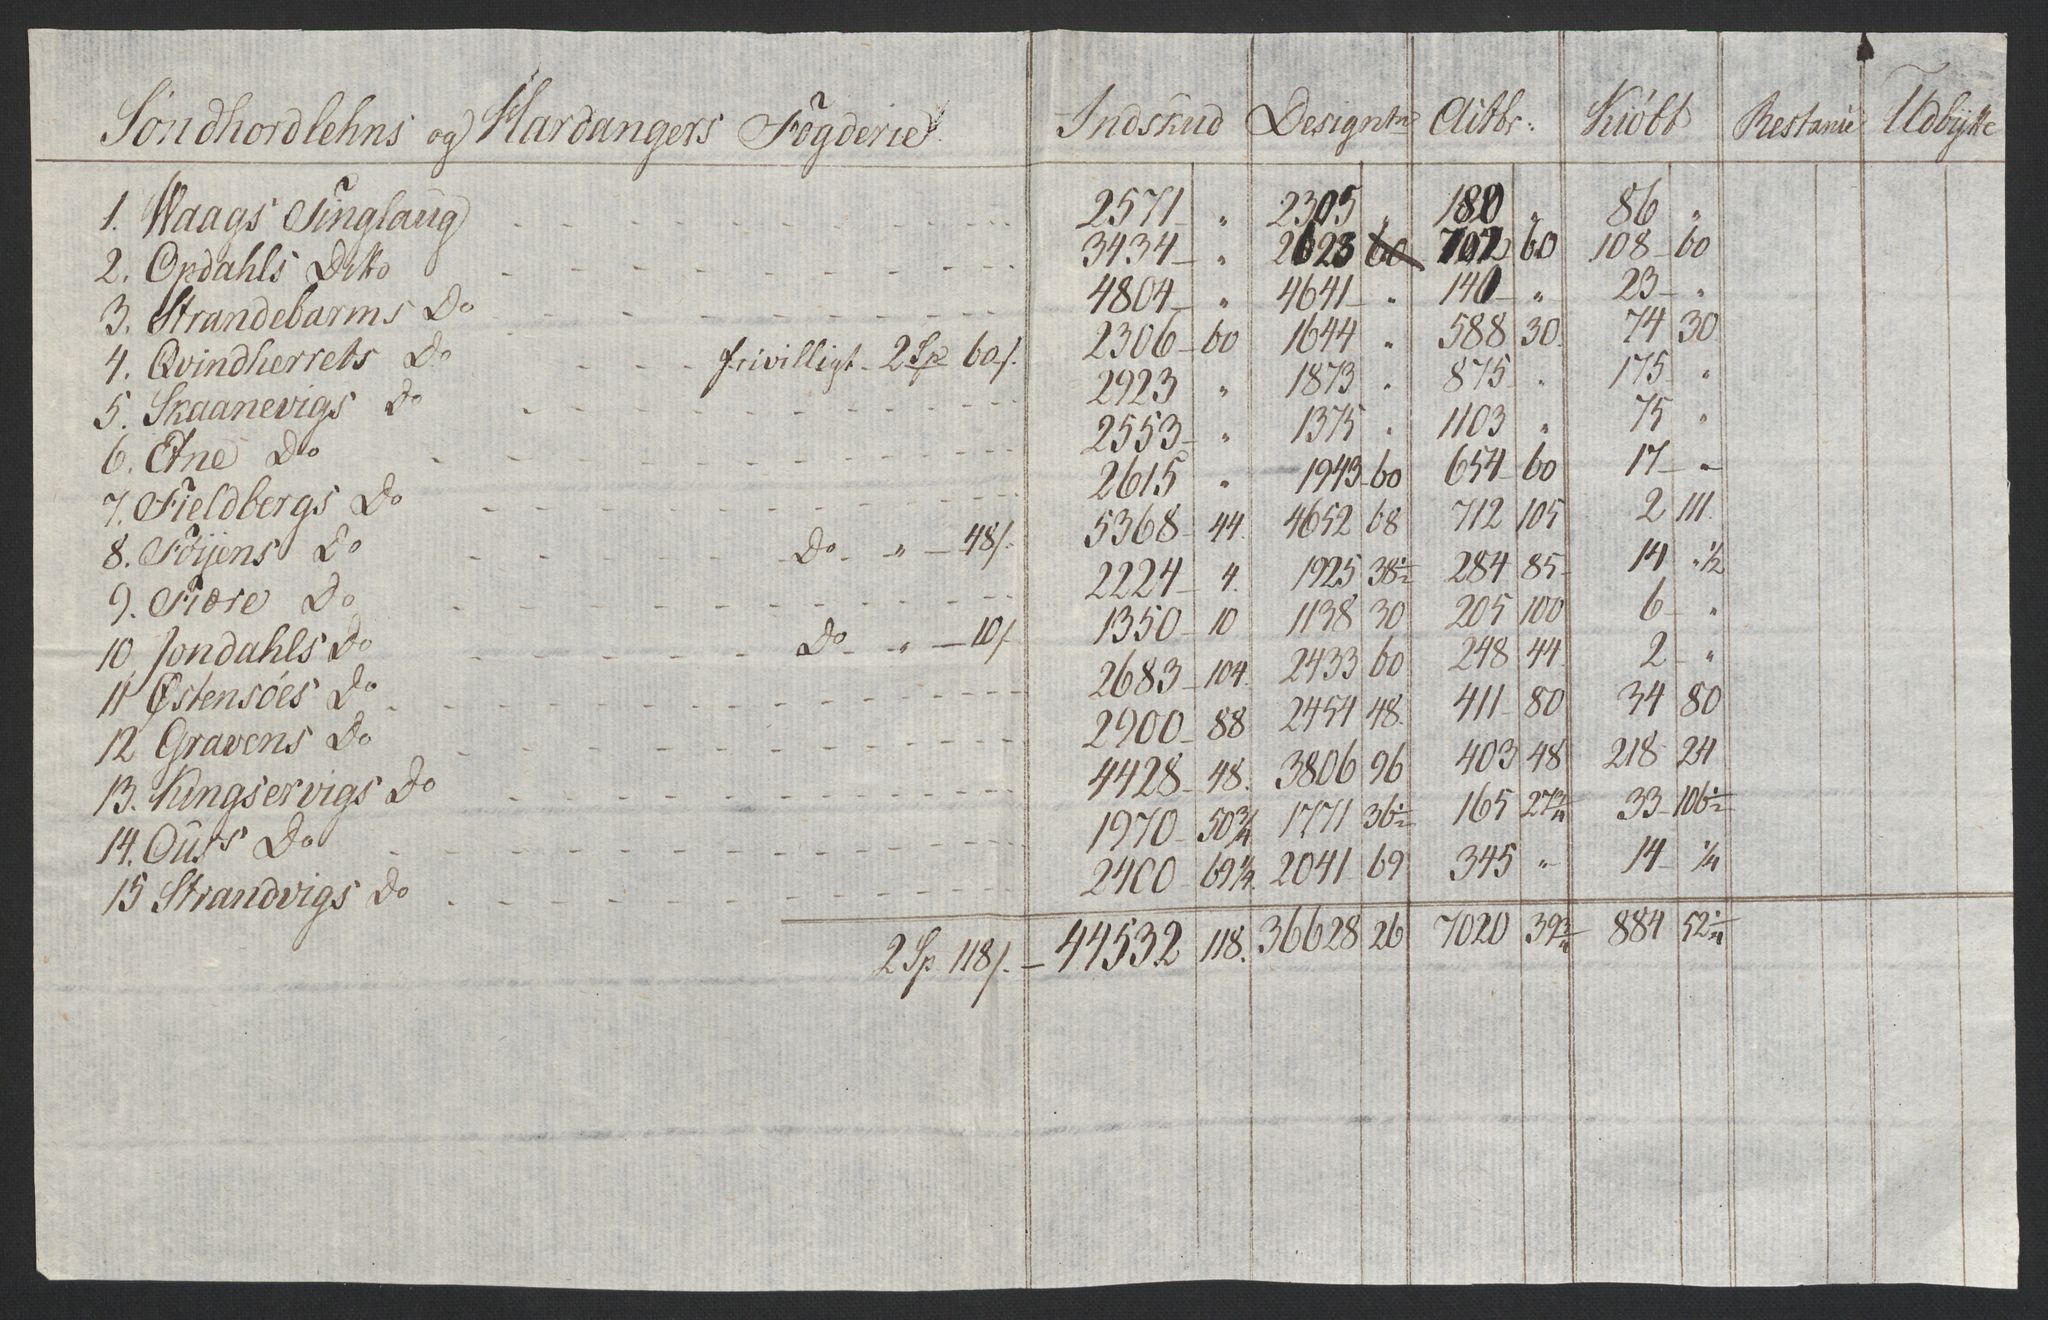 Söndhordlehns og Hardangers Fogderie Indskud Designtn Aitbr: Kiöbt Restanse Udbytte
1. Waags Tinglaug 2571 " 2305 " 180 " 86 "
2. Opdahls Ditto 3434 " 2623 60 702 60 108 60
3. Strandebarms Do 4804 " 4641 " 140 " 23 "
4. Qvindherrets Do frivilligt 2 Sp 60 s. 2306 60 1644 " 588 30 74 30
5. Skaanevigs Do 2923 " 1873 " 875 " 175 "
6. Etne Do 2553 " 1375 " 1103 " 75 "
7. Fieldbergs Do 2615 " 1943 60 654 60 17 "
8. Föyens Do Do " 48 s. 5368 44 4652 68 712 105 2 111
9. Fiære Do 2224 4 1925 38½ 284 85 14 " ½
10 Jondahls Do Do " 10 s 1350 10 1138 30 205 100 6 "
11 Östensöes Do 2683 104 2433 60 248 44 2 "
12 Gravens Do 2900 88 2454 48 411 80 34 80
13. Kingservigs Do 4428 48 3806 96 403 48 218 24
14. Ouss Do 1970 50¾ 1771 36½ 165 27¾ 33 106½
15 Strandvigs Do 2400 69¼ 2041 69 345 " 14 ¼
2 Sp. 118 s. 44532 118. 36628 26 7020 39¾ 884 52¼